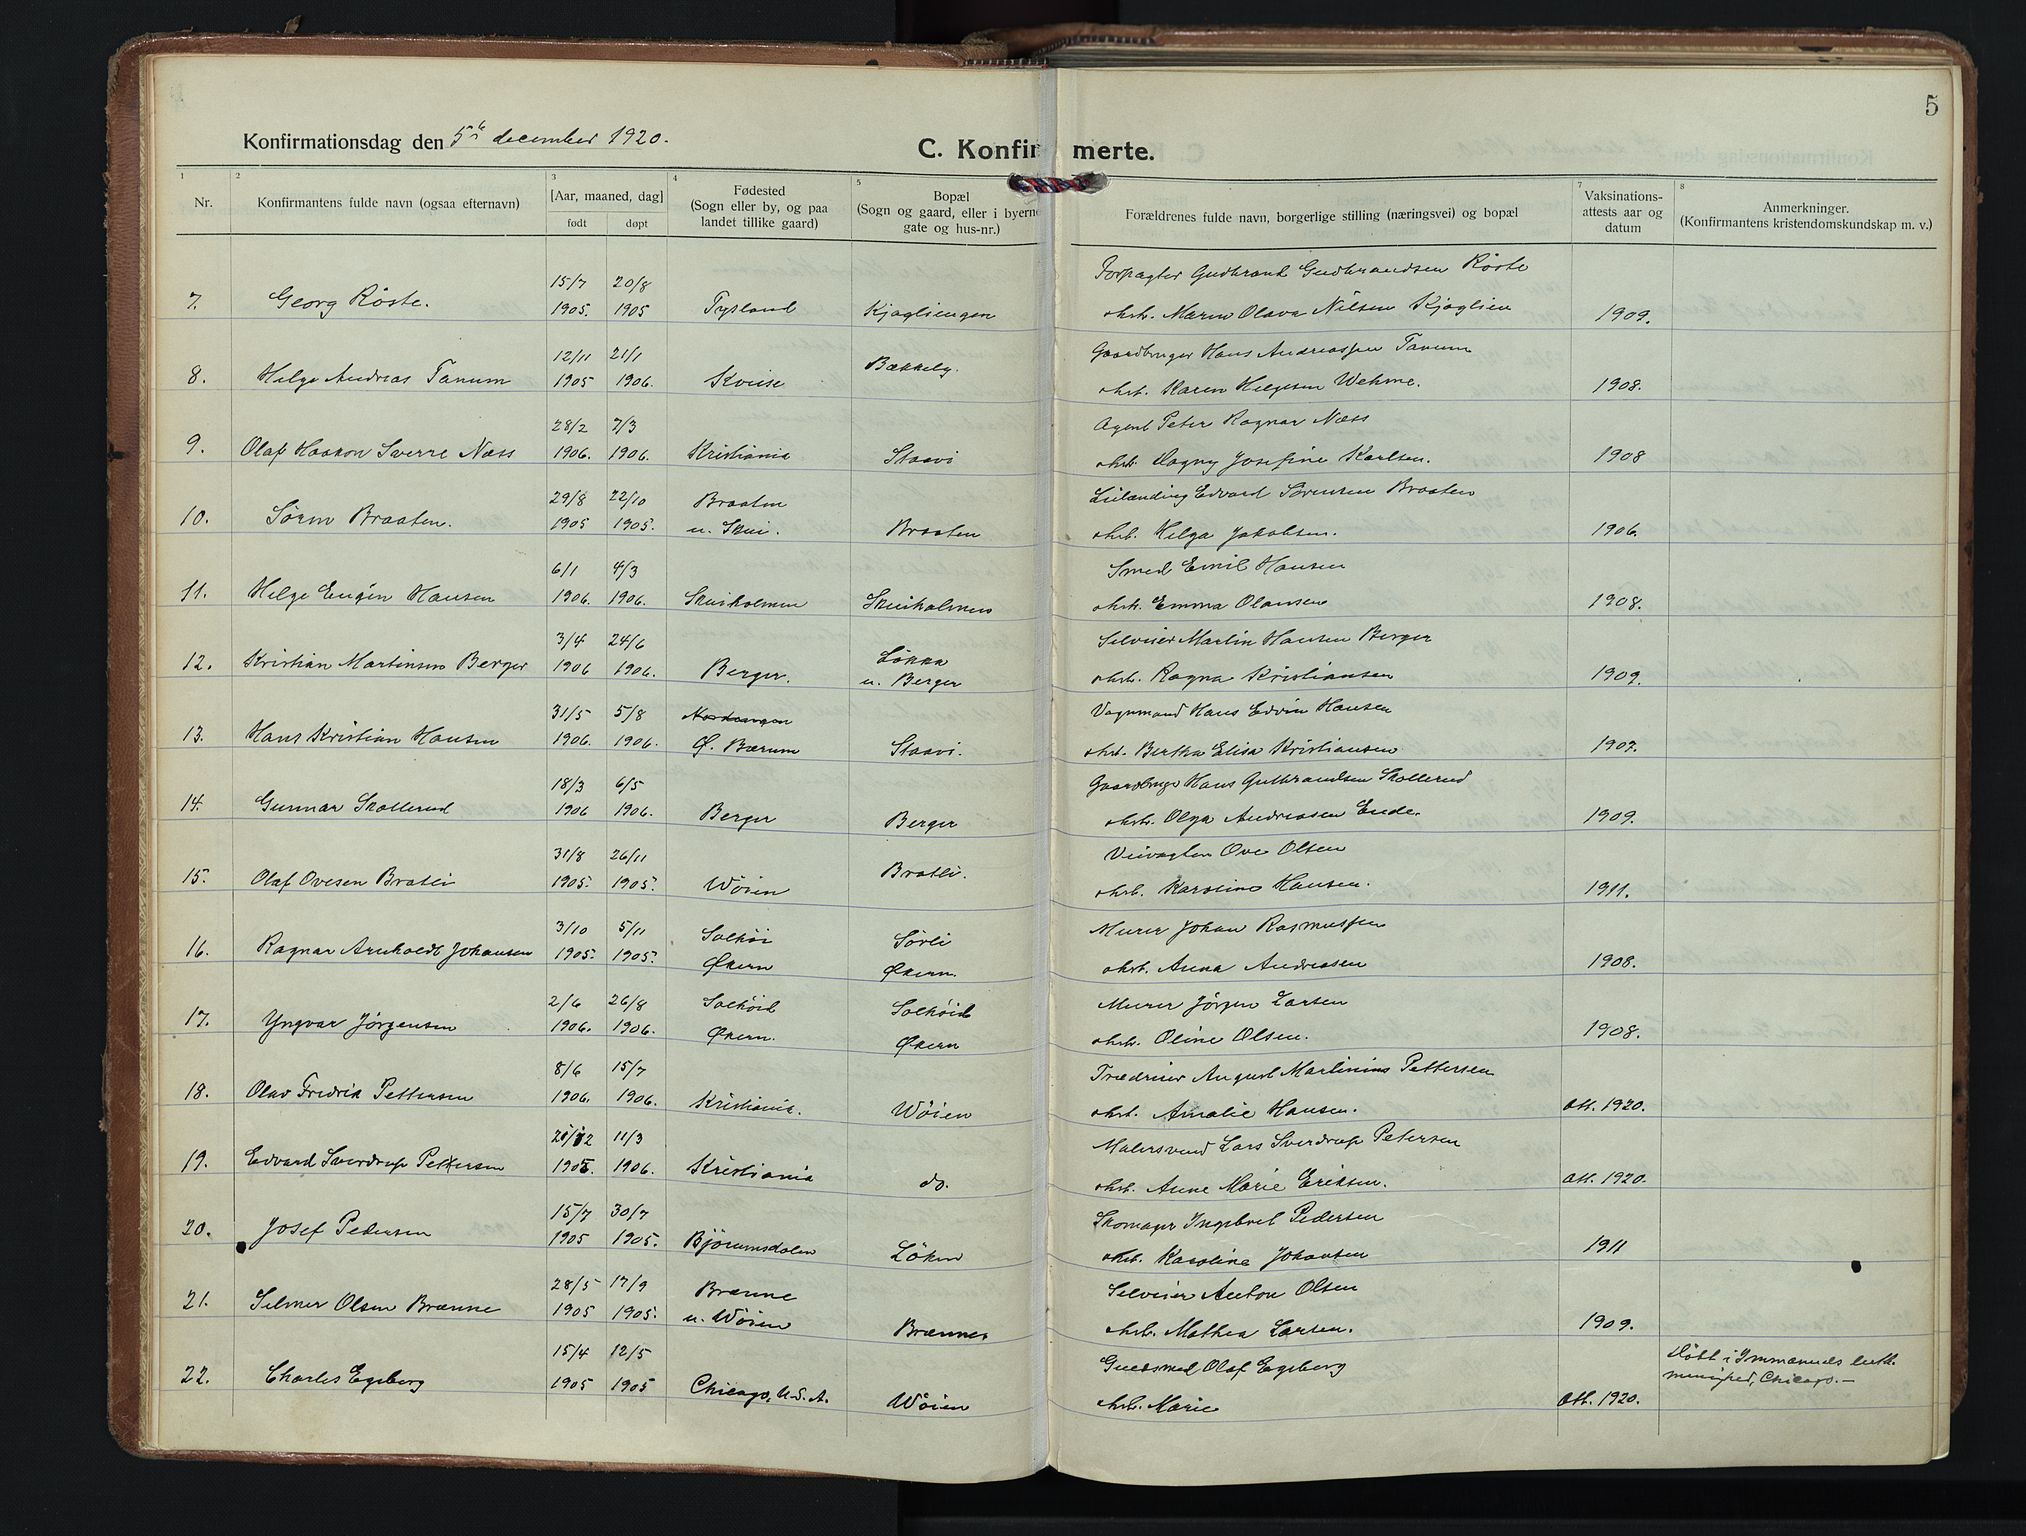 5
Konfirmationsdag den 5te december 1920.
C. Konfirmerte.
1 2 3 4 5 7 8
Nr.
Konfirmantens fulde navn (ogsaa efternavn)
[Aar, maaned, dag]
født døpt
Fødested
(Sogn eller by, og paa
landet tillike gaard)
Bopæl
(Sogn og gaard, eller i byerne
gate og hus-nr.)
Forældrenes fulde navn, borgerlige stilling (næringsvei) og bopæl
Vaksinations-
attests aar og
datum
Anmerkninger.
(Konfirmantens kristendomskundskap m. v.)
15/7 20/8 Forpagter Gudbrand Gudbrandsen Röste
7. Georg Röste. 1905. 1905 Kjagliengen ohrb. Maren Olava Nilsen Kjaglien 1909.
12/11 21/1 Bækkely. Gaardbruger Hans Andreassen Tanum
8. Helge Andreas Tanum 1905 1906. ohrb. Karen Helgesen Wehme. 1908.
28/2 7/3 Agent Peter Ragnar Næss
9. Olaf Haakon Sverre Næss 1906. 1906. Kristiania Staavi ohrb. Dagny Josefine Karlsen. 1908
29/8 22/10 Braaten Leilænding Edvard Sörensen Braaten
10. Sören Braaten. 1905 1905. u. Skui. Braaten ohrb. Helga Jakobsen. 1906.
6/1 4/3 Smed Emil Hansen
11. Helge Eugen Hansen 1906. 1906. Skuiholmen Skuiholmen ohrb. Emma Olausen 1908.
3/4 24/6 Lökka Selveier Martin Hansen Berger
12. Kristian Martinsen Berger 1906 1906. Berger. u. Berger ohrb. Ragna Kristiansen 1909.
31/5 5/8 Vognmand Hans Edvin Hansen
13. Hans Kristian Hansen 1906. 1906. Ø. Bærum Staavi. ohrb. Bertha Elisa Kristiansen 1907.
18/3 6/5 Gaardbruger Hans Gulbrandsen Skollerud
14. Gunnar Skollerud 1906 1906. Berger Berger ohrb. Olga Andreasen Ende. 1909.
31/8 26/11 Bratli. Veivogter Ove Olsen
15. Olaf Ovesen Bratli 1905. 1905. Wöien ohrb. Karoline Hansen. 1911.
3/10 5/11 Solhöi Sörli Murer Johan Rasmussen
16. Ragnar Arnholdt Johansen 1905. 1905. Økern Økern. ohrb. Anna Andreasen 1908.
2/6 26/8 Solhöid Solhöid Murer Jörgen Larsen
17. Yngvar Jörgensen 1906. 1906. Økern. Økern ohrb. Oline Olsen. 1908.
8/6 15/7 Trædreier August Martinius Pettersen
18. Olav Fredrik Pettersen 1906. 1906. Kristiania. Wöien ohrb. Amalie Hansen. Att. 1920.
11/3 Malersvend Lars Sverdrup Petersen
19. Edvard Sverdrup Petersen 1905. 1906. Kristiania do. ohrb. Anne Marie Eriksen. Att. 1920.
15/7 30/7 Skomager Ingebret Pedersen
20. Josef Pedersen 1905 1905. Bjørumsdalen Löken ohrb. Karoline Johansen 1911
28/5 17/9 Brænne Selveier Anton Olsen
21. Selmer Olsen Brænne 1905 1905. u. Wöien Brænne ohrb. Mathea Larsen. 1909.
15/4 12/5 Guldsmed Olaf Egeberg Döbt i Immanuels luth.
22. Charles Egeberg 1905 1905 Chicago, U.S.A. Wöien ohrb. Marie Att. 1920. menighed, Chicago. —